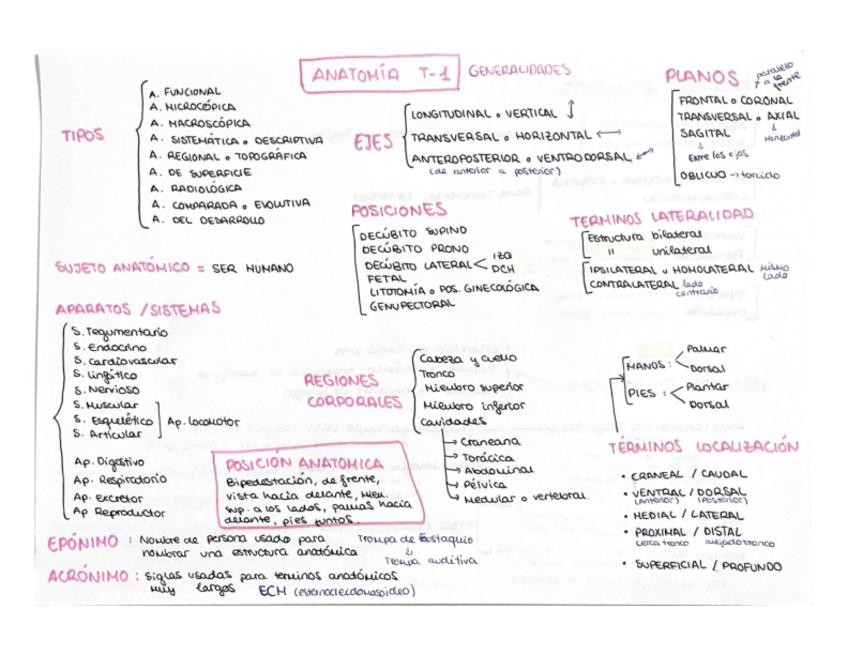 ANATOMÍA T-1 GENERALIDADES
TIPOS
A. FUNCIONAL
A. MICROCÓPICA
A. MACROSCÓPICA
A. SISTEMÁTICA o DESCRIPTIVA
A. REGIONAL o TOPOGRÁFICA
A. DE SUPERFICIE
A. RADIOLÓGICA
A. COMPARADA o EVOLUTIVA
A. DEL DESARROLLO
EJES
LONGITUDINAL o VERTICAL
TRANSVERSAL o HORIZONTAL
ANTEROPOSTERIOR o VENTRODORSAL
(de anterior a posterior)
PLANOS
paralelo
a la
frente
FRONTAL o CORONAL
TRANSVERSAL o AXIAL
Horizontal
SAGITAL
Entre los ojos
OBLICUO → torcido
SUJETO ANATÓMICO = SER HUMANO
POSICIONES
DECÚBITO SUPINO
DECÚBITO PRONO
DECÚBITO LATERAL
IZQ
DCH
FETAL
LITOTOMÍA o POS. GINECOLÓGICA
GENUPECTORAL
TERMINOS LATERALIDAD
Estructura bilateral
" unilateral
IPSILATERAL u HOMOLATERAL mismo
lado
CONTRALATERAL lado
contrario
APARATOS / SISTEMAS
S. Tegumentario
S. Endocrino
S. Cardiovascular
S. Linfático
S. Nervioso
S. Muscular
S. Esquelético
S. Articular
Ap. Locomotor
Ap. Digestivo
Ap. Respiratorio
Ap. Excretor
Ap Reproductor
REGIONES
CORPORALES
Cabeza y cuello
Tronco
Miembro superior
Miembro inferior
Cavidades
→ Craneana
→ Torácica
→ Abdominal
→ Pélvica
→ Medular o vertebral
MANOS:
Palmar
Dorsal
PIES:
Plantar
Dorsal
TÉRMINOS LOCALIZACIÓN
• CRANEAL / CAUDAL
• VENTRAL / DORSAL
(anterior) (posterior)
• MEDIAL / LATERAL
• PROXIMAL / DISTAL
cerca tronco alejado tronco
• SUPERFICIAL / PROFUNDO
POSICIÓN ANATÓMICA
Bipedestación, de frente,
vista hacia delante, miem.
sup. a los lados, palmas hacia
delante, pies juntos.
EPÓNIMO: Nombre de persona usado para
nombrar una estructura anatómica
Trompa de Eustaquio
↓
Trompa auditiva
ACRÓNIMO: Siglas usadas para terminos anatómicos
muy largos ECM (esternocleidomastoideo)